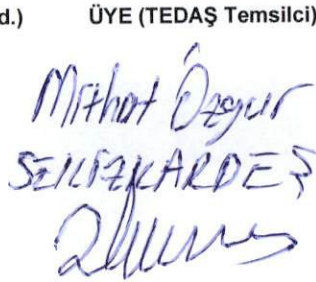 d.) ÜYE (TEDAŞ Temsilci)
Mithat Özgür
SEKİZKARDEŞ